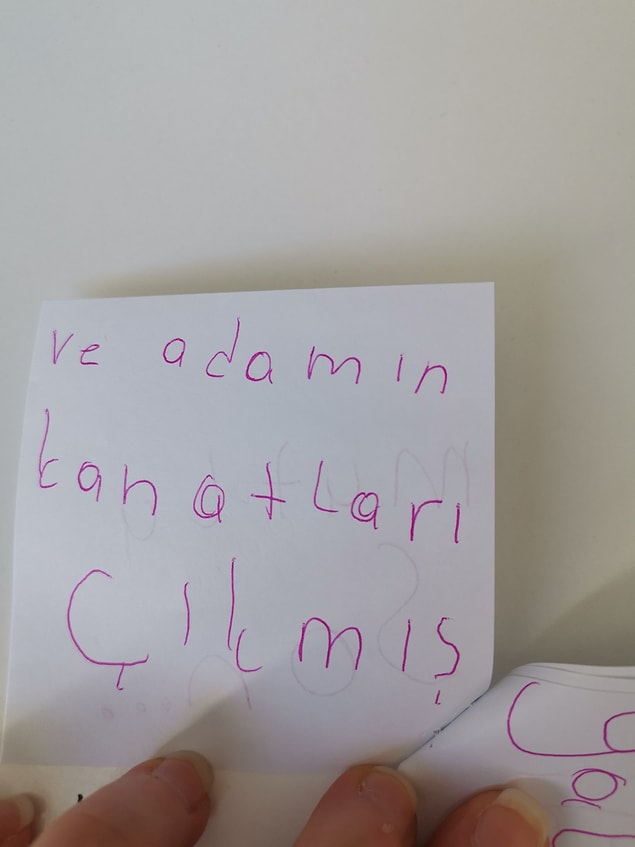 ve adamın
kanatları
Çıkmış